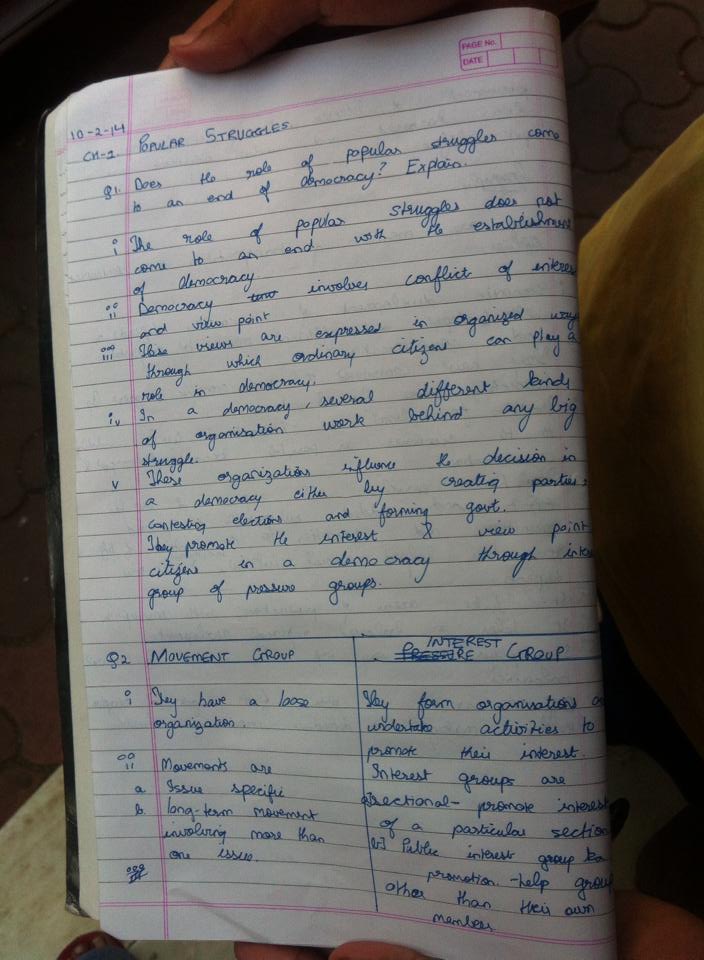 PAGE No.
DATE
10-2-14
CH-2 POPULAR STRUGGLES
Q1. Does the role of popular struggles come
to an end of democracy? Explain.
i The role of popular struggles does not
come to an end with the establishment
of democracy
ii Democracy involves conflict of interes
and view point
iii These views are expressed in organized way
through which ordinary citizens can play a
role in democracy.
iv In a democracy, several different kinds
of organisation work behind any big
struggle.
v These organizations influence the decision in
a democracy either by creating parties,
contesting elections and forming govt.
They promote the interest & view point
citizens in a democracy through inte
group of pressure groups.
Q2 MOVEMENT GROUP
i They have a loose
organization.
ii Movements are
a Issue specific
b. long-term movement
involving more than
one issue.
iii
INTEREST
PRESSURE GROUP
They form organisations a
undertake activities to
promote their interest.
Interest groups are
a] sectional- promote interest
of a particular section
b] Public interest group
promotion - help group
other than their own
members